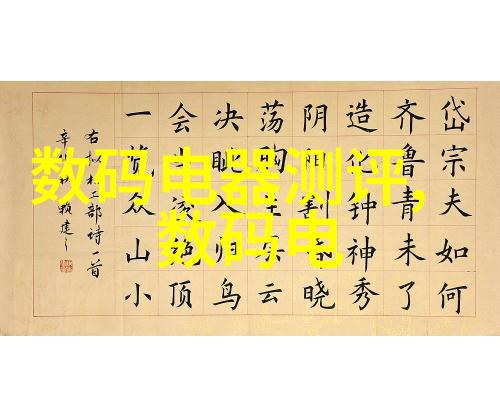 岱宗夫如何
齐鲁青未了
造化钟神秀
阴阳割昏晓
荡胸生云
决眦入归鸟
会当凌绝顶
一览众山小
右杜工部诗一首
数码电器测评,
数码电